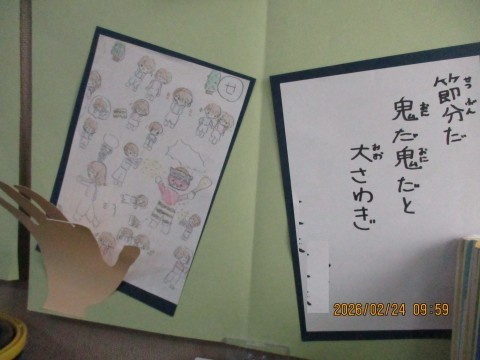 節分だ
せつぶん
鬼だ鬼だと
おに おに
大さわぎ
おお
2026/02/24 09:59